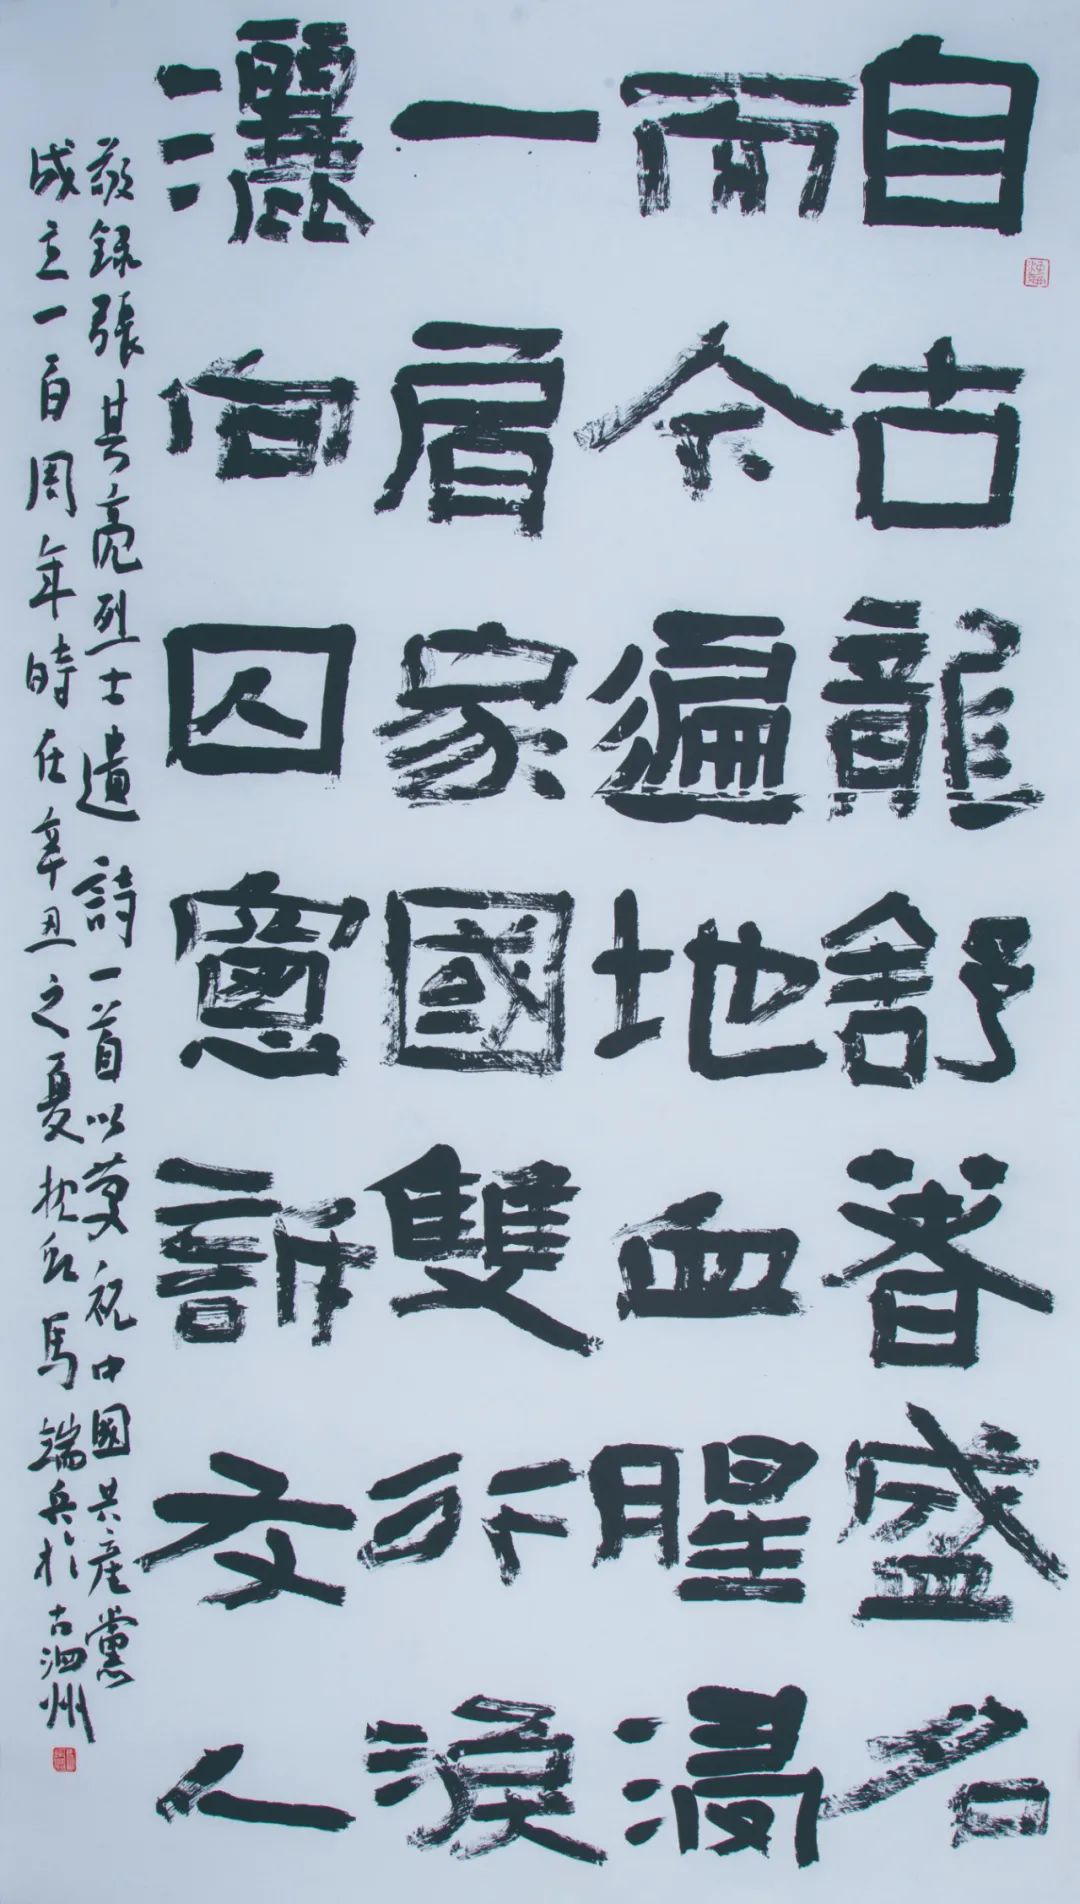 自古龍舒著盛名
而今遍地血腥浸
一肩家國雙行淚
灑向囚窻訴友人
敬錄張其亮烈士遺詩一首以慶祝中國共產黨
成立一百周年時在辛丑之夏馬端兵於古泗州